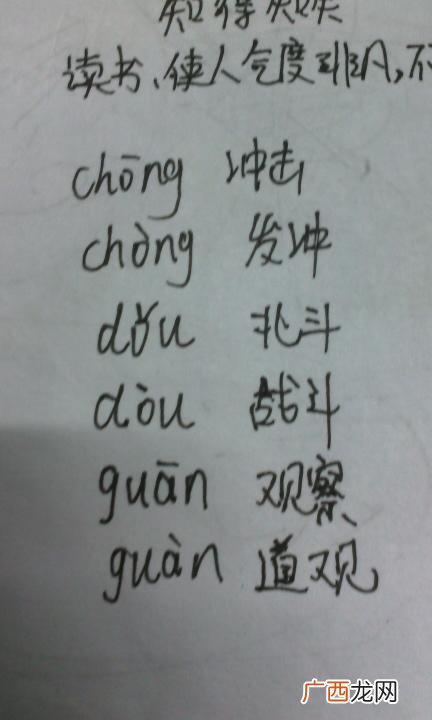 读书、使人气度非凡,不
chōng 冲击
chòng 发冲
dǒu 北斗
dòu 战斗
guān 观察
guàn 道观
广西龙网